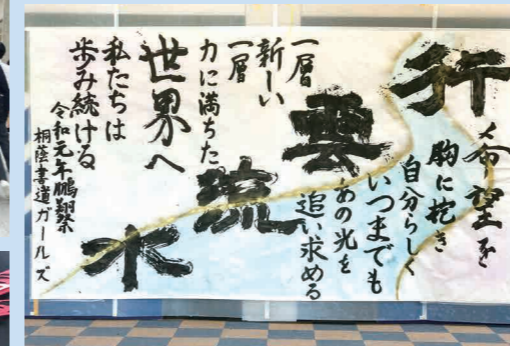 行雲流水
希望を
胸に抱き
自分らしく
いつまでも
あの光を
追い求める
一層
新しい
一層
力に満ちた
世界へ
私たちは
歩み続ける
令和元年鵬翔祭
桐蔭書道ガールズ